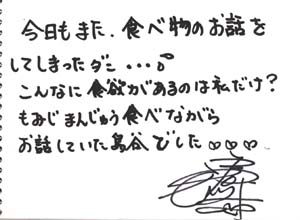 今日もまた、食べ物のお話を
してしまったダニ・・・♪
こんなに食欲があるのは私だけ?
もみじまんじゅう食べながら
お話していた島谷でした♡♡♡